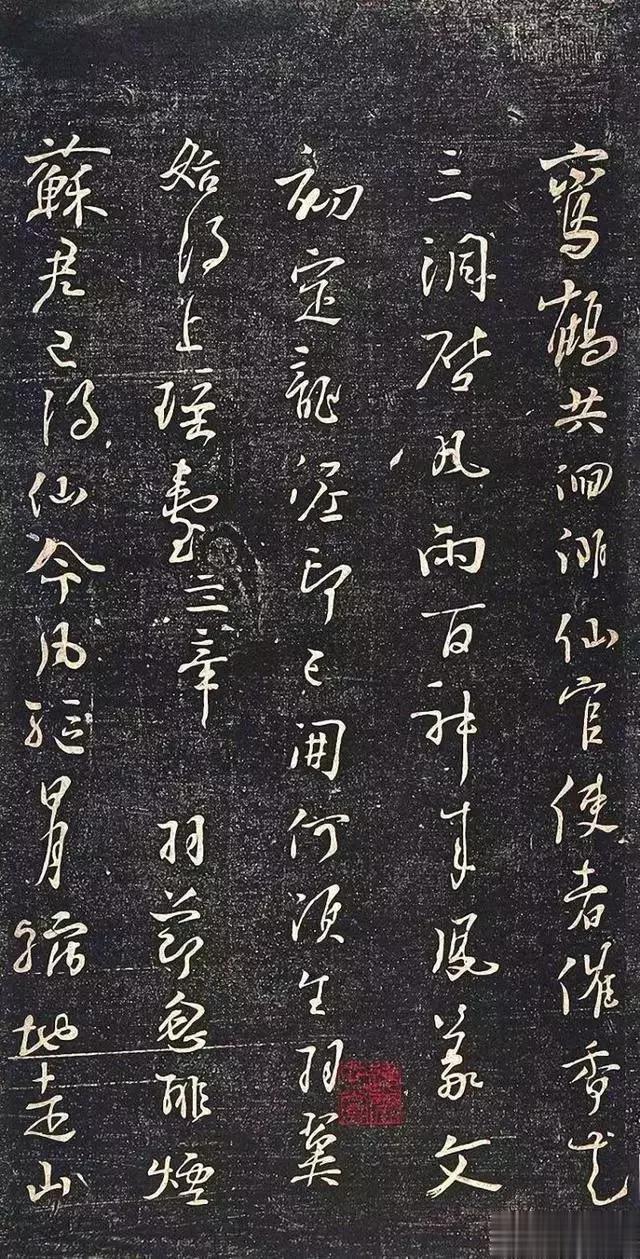 鸞鶴共徊徘仙官使者催香花
三洞啓風雨百神来鳳篆文
初定龍泥印已開何須生羽翼
始得上瑶臺三章 羽節忽排煙
蘇君已得仙命風驅日月縮地走山